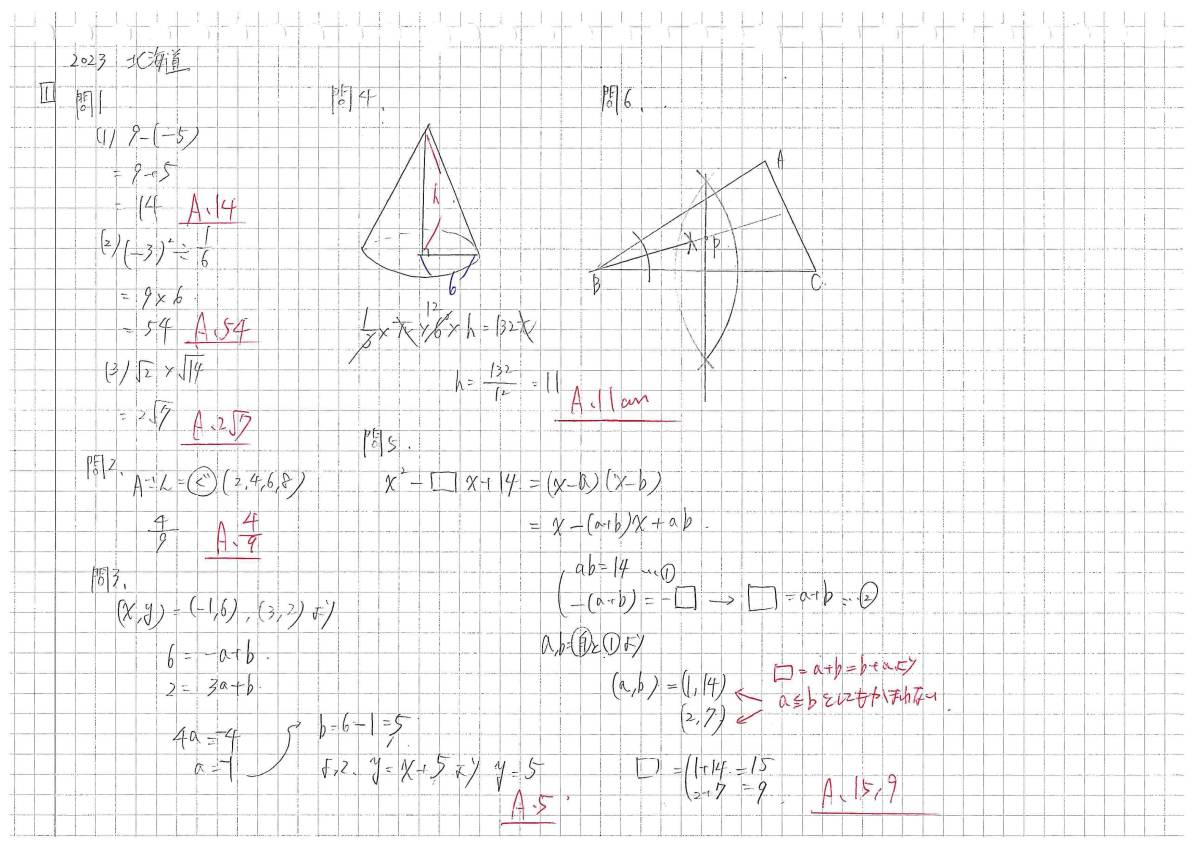 2023 北海道
1
問1
(1) 9-(-5)
= 9+5
= 14 A.14
(2) (-3)² ÷ 1/6
= 9×6
= 54 A.54
(3) √2 × √14
= 2√7 A.2√7
問2.
(2,4,6,8)
4/9 A.4/9
問3.
(x,y) = (-1,6), (3,2) より
6 = -a+b.
2 = 3a+b.
4a = -4
a = -1
b = 6-1 = 5
よって、y = x+5 より y = 5
A.5
問4.
h
6
1/3 × π × 6² × h = 132π
12
h = 132/12 = 11
A.11cm
問5.
x² - □x + 14 = (x-a)(x-b)
= x - (a+b)x + ab.
ab = 14 …①
-(a+b) = -□ → □ = a+b …②
a,b=自と①より
(a,b) = (1,14)
(2,7)
□ = a+b = b+a より
a≦b としてもかまわない
□ = 1+14 = 15
2+7 = 9.
A.15,9
問6.
A
B
C
P